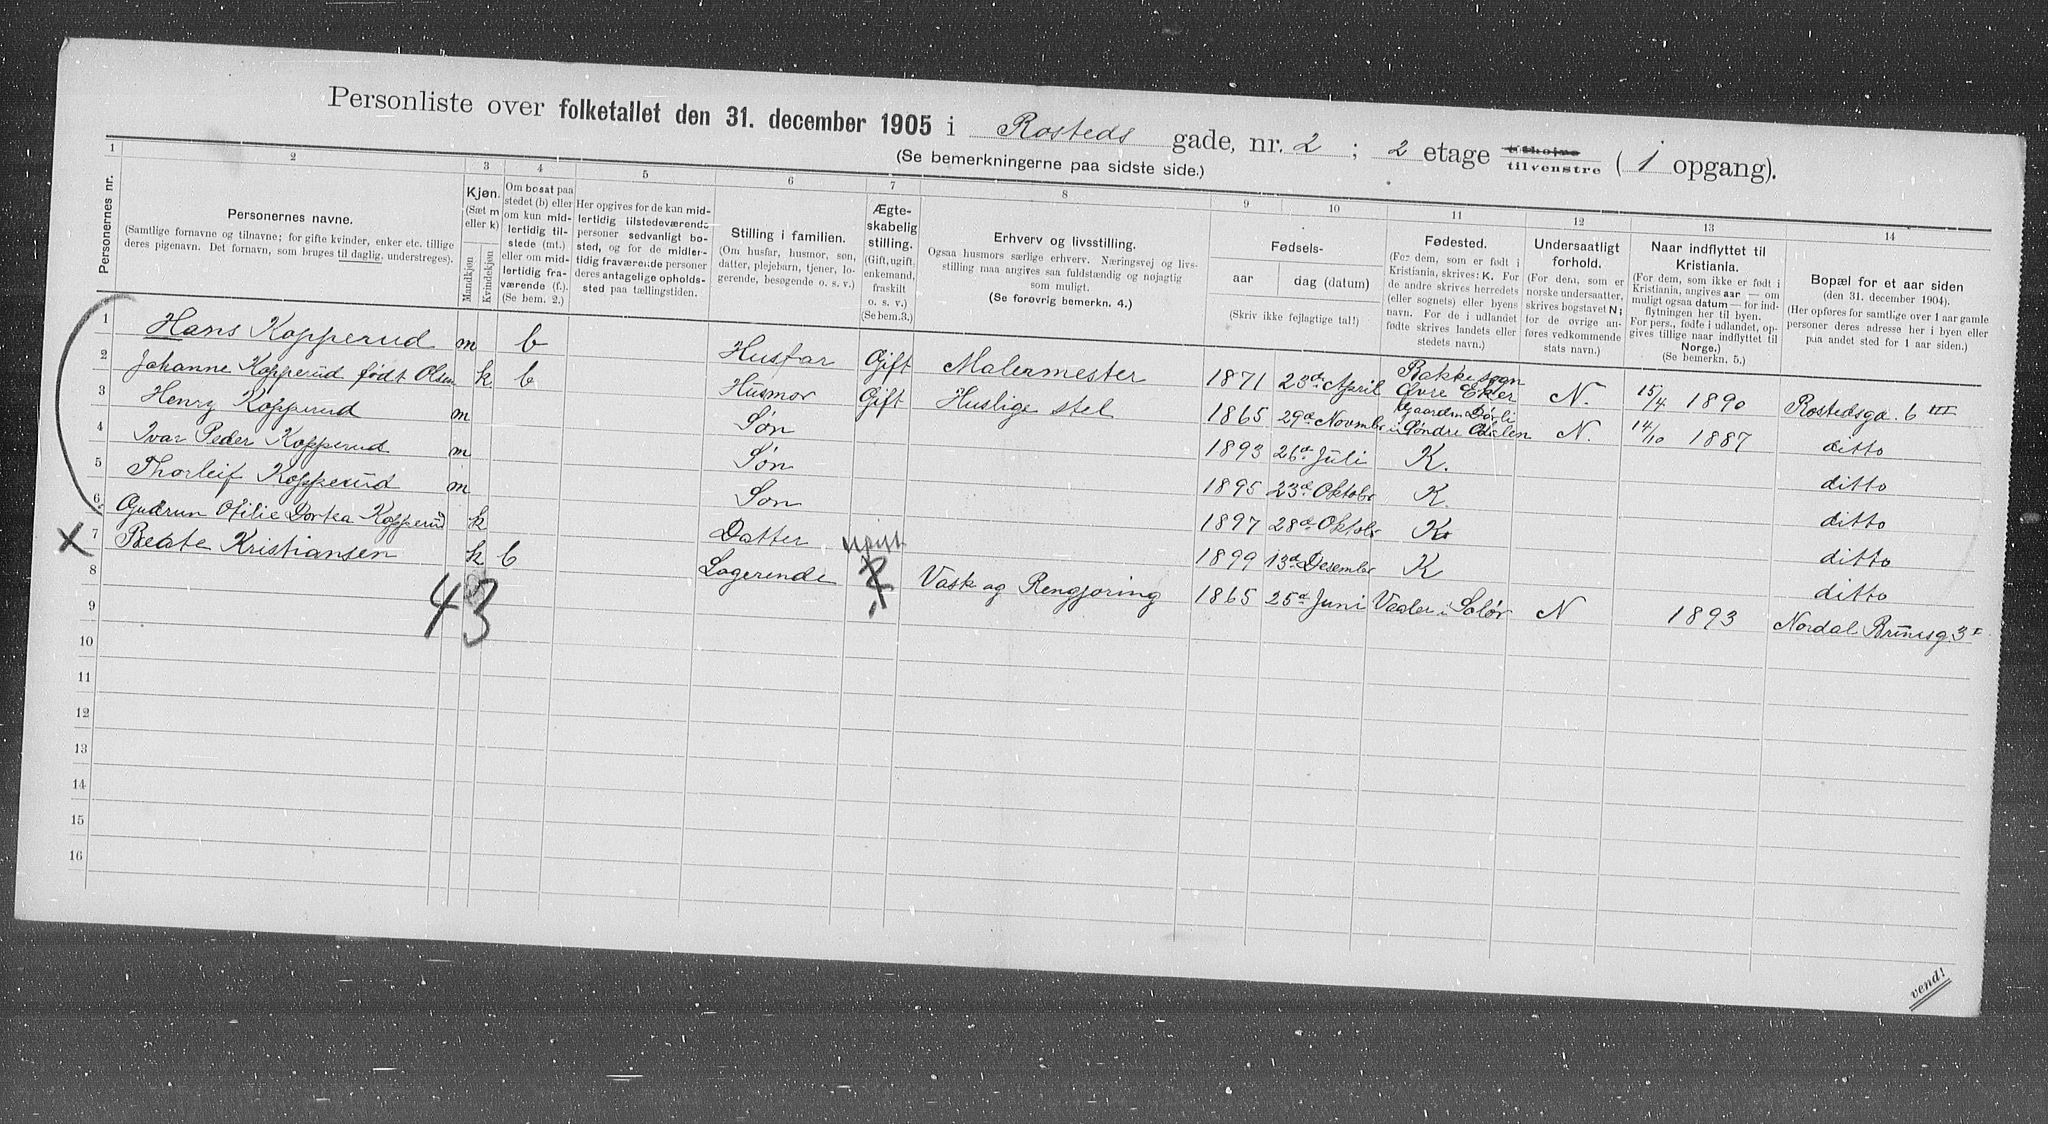 Personliste over folketallet den 31. december 1905 i Rosteds gade, nr. 2 ; 2 etage tilhøire / tilvenstre ( 1 opgang).
(Se bemerkningerne paa sidste side.)
1 2 3 4 5 6 7 8 9 10 11 12 13 14
Personernes nr.
Personernes navne.
(Samtlige fornavne og tilnavne; for gifte kvinder, enker etc. tillige
deres pigenavn. Det fornavn, som bruges til daglig, understreges).
Kjøn.
(Sæt m
eller k)
Mandkjøn
Kvindekjøn
Om bosat paa
stedet (b) eller
om kun mid-
lertidig til-
stede (mt.)
eller om mid-
lertidig fra-
værende (f.).
(Se bem. 2.)
Her opgives for de kun mid-
lertidig tilstedeværende
personer sedvanligt bo-
sted, og for de midler-
tidig fraværende personer
deres antagelige opholds-
sted paa tællingstiden.
Stilling i familien.
(Om husfar, husmor, søn,
datter, plejebarn, tjener, lo-
gerende, besøgende o. s. v.)
Ægte-
skabelig
stilling.
(Gift, ugift.
enkemand,
fraskilt
o. s. v.)
(Se bem.3.)
Erhverv og livsstilling.
Ogsaa husmors særlige erhverv. Næringsvej og livs-
stilling maa angives saa fuldstændig og nøjagtig
som muligt.
(Se forøvrig bemerkn. 4.)
Fødsels-
aar
dag (datum)
(Skriv ikke fejlagtige tal!)
Fødested.
(For dem, som er født i
Kristiania, skrives: K. For
de andre skrives herredets
(eller sognets) eller byens
navn. For de i udlandet
fødte skrives landets eller
stedets navn.)
Undersaatligt
forhold.
(For dem, som er
norske undersaatter,
skrives bogstavet N;
for de øvrige an-
føres vedkommende
stats navn.)
Naar indflyttet til
Kristiania.
(For dem, som ikke er født i
Kristiania, angives aar — om
muligt ogsaa datum — for ind-
flytningen her til byen.
For pers., fødte i udlandet, op-
gives tillige naar indflyttet til
Norge.)
(Se bemerkn. 5.)
Bopæl for et aar siden
(den 31. december 1904).
(Her opføres for samtlige over 1 aar gamle
personer deres adresse her i byen eller
paa andet sted for 1 aar siden.)
1 Hans Kopperud m b Husfar Gift Malermester 1871 23de April Bakke sogn Øvre Eker N. 15/4 1890 Rostedsgd. 6 III
2 Johanne Kopperud født Olsen k b Husmor Gift Huslige stel 1865 29de Novmbr i Søndre Odalen N. 14/10 1887 ditto
3 Henry Kopperud m Søn 1893 26de Juli K. ditto
4 Ivar Peder Kopperud m Søn 1895 23de Oktobr K. ditto
5 Thorleif Kopperud m Søn 1897 28de Oktobr K. ditto
6 Gudrun Otilie Dortea Kopperud k Datter 1899 13de Desembr K ditto
x 7 Beate Kristiansen k b Logerende ugift ? Vask og Rengjøring 1865 25de Juni Vaaler i Solør N 1893 Nordal Brunsg. 3 I
8
43
9
10
11
12
13
14
15
16
vend!